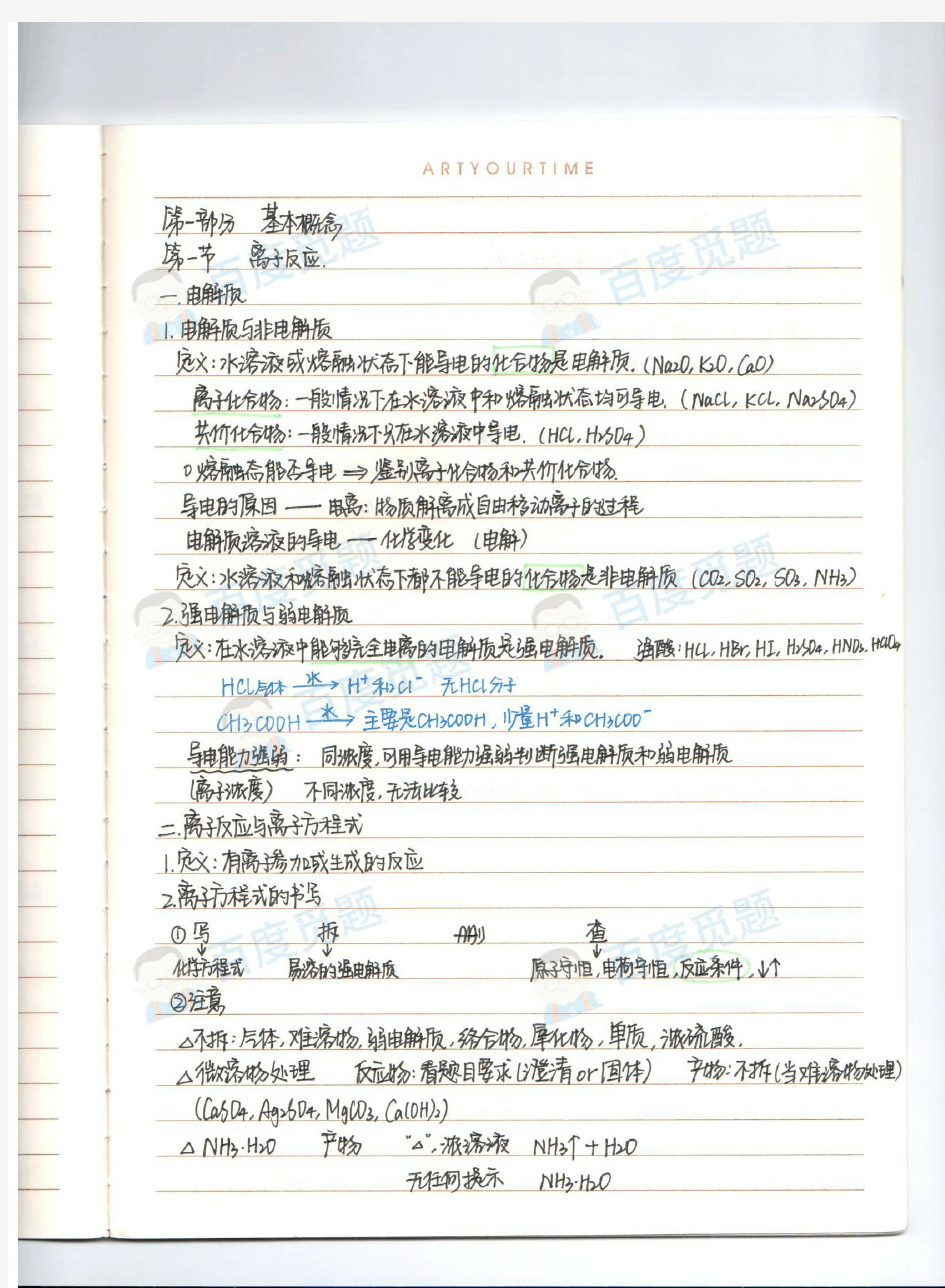 ARTYOURTIME
第一部分 基本概念
第一节 离子反应.
一.电解质
1.电解质与非电解质
定义:水溶液或熔融状态下能导电的化合物是电解质.(Na2O,K2O,CaO)
离子化合物:一般情况下在水溶液中和熔融状态均可导电.(NaCl,KCl,Na2SO4)
共价化合物:一般情况下只在水溶液中导电.(HCl,H2SO4)
熔融态能否导电⇒鉴别离子化合物和共价化合物.
导电的原因——电离:物质解离成自由移动离子的过程
电解质溶液的导电——化学变化(电解)
定义:水溶液和熔融状态下都不能导电的化合物是非电解质(CO2,SO2,SO3,NH3)
2.强电解质与弱电解质
定义:在水溶液中能够完全电离的电解质是强电解质. 强酸:HCl,HBr,HI,H2SO4,HNO3,HClO4
HCl气体 —水→ H+和Cl- 无HCl分子
CH3COOH —水→ 主要是CH3COOH,少量H+和CH3COO-
导电能力强弱: 同浓度,可用导电能力强弱判断强电解质和弱电解质
(离子浓度) 不同浓度,无法比较
二.离子反应与离子方程式
1.定义:有离子参加或生成的反应
2.离子方程式的书写
①写 拆 删 查
↓ ↓ ↓
化学方程式 易溶的强电解质 原子守恒,电荷守恒,反应条件,↓↑
②注意
△不拆:气体,难溶物,弱电解质,络合物,氧化物,单质,浓硫酸.
△微溶物处理 反应物:看题目要求(澄清or固体) 产物:不拆(当难溶物处理)
(CaSO4,Ag2SO4,MgCO3,Ca(OH)2)
△NH3·H2O 产物 "△",浓溶液 NH3↑+H2O
无任何提示 NH3·H2O
百度觅题
百度觅题
百度觅题
百度觅题
百度觅题
百度觅题